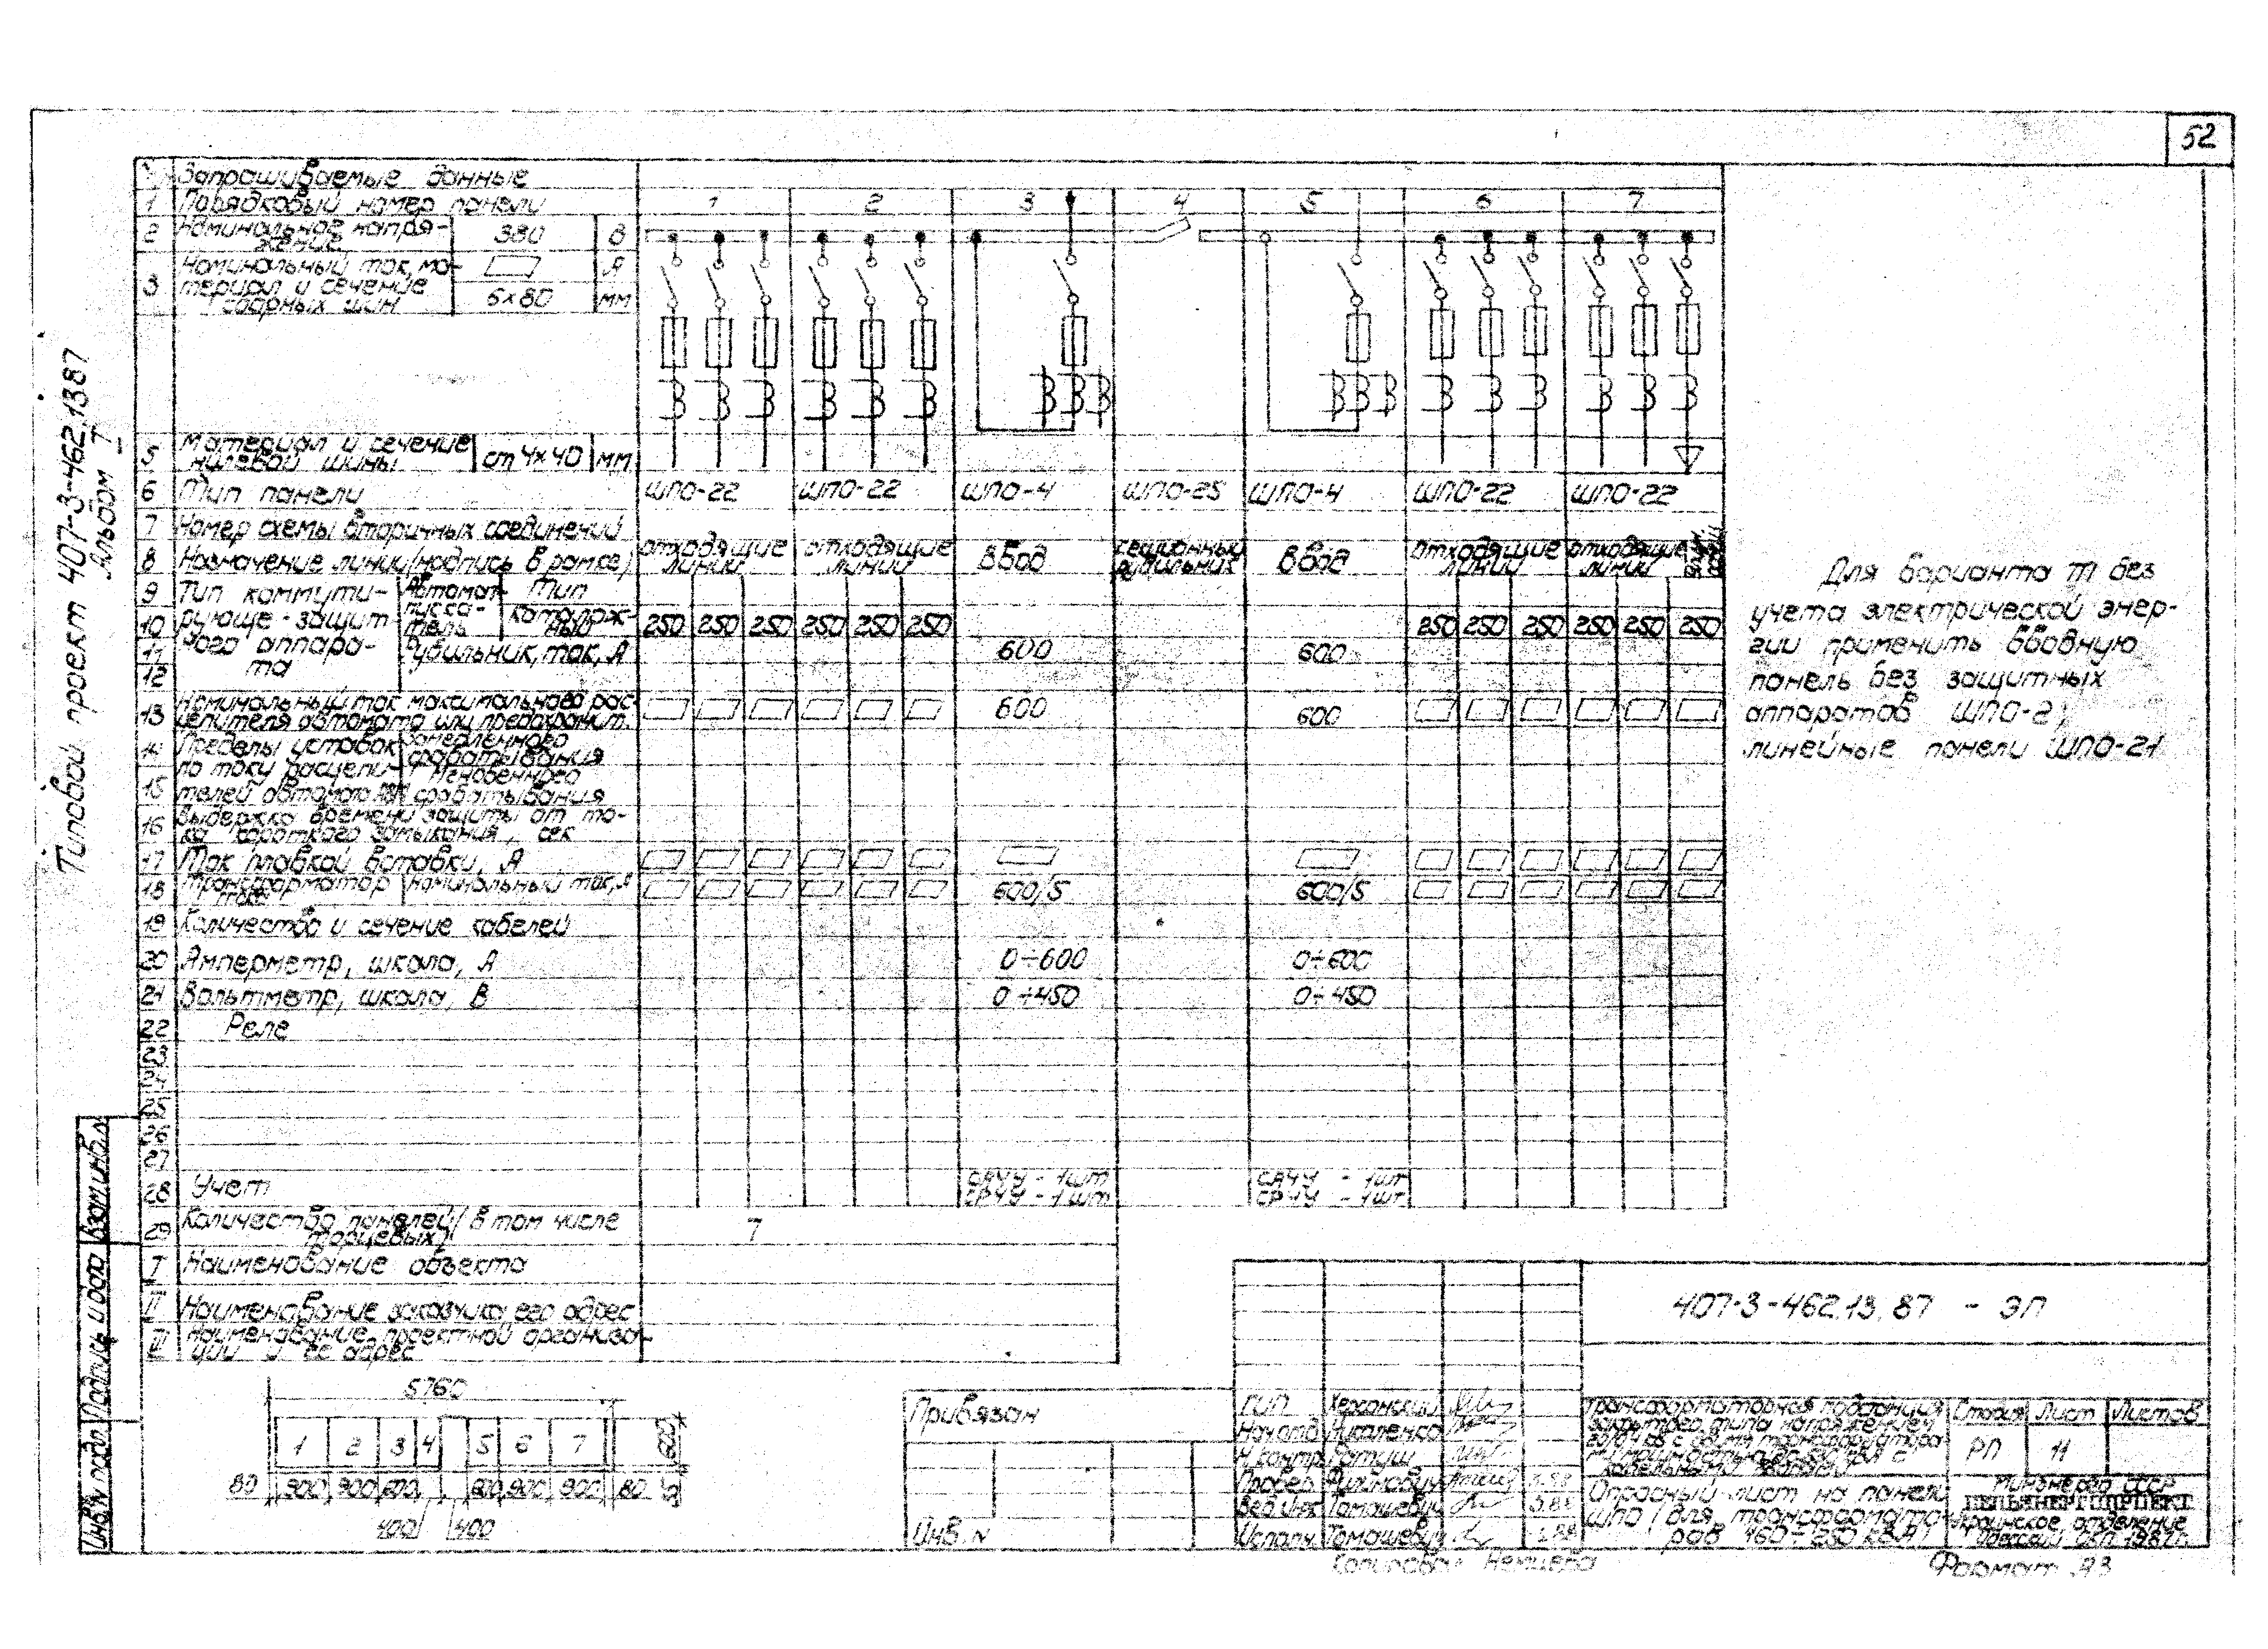 52
Типовой проект 407-3-462.13.87
Альбом I
Запрашиваемые данные
1 Порядковый номер панели 1 2 3 4 5 6 7
2 Номинальное напря-
жение 380 В
3 Номинальный ток, ма-
териал и сечение
сборных шин А
6×80 мм
5 Материал и сечение
нулевой шины ст 4×40 мм
6 Тип панели ШПО-22 ШПО-22 ШПО-4 ШПО-25 ШПО-4 ШПО-22 ШПО-22
7 Номер схемы вторичных соединений
8 Назначение линии (надпись в рамке) отходящие
линии отходящие
линии Ввод секционный
рубильник Ввод отходящие
линии отходящие
линии
9 Тип коммути-
10 рующе-защит-
11 ного аппара-
12 та
Автомат
пуска-
тель
Тип
каталож-
ный
250 250 250 250 250 250 250 250 250 250 250 250
Рубильник, ток, А 600 600
13 Номинальный ток максимального рас-
цепителя автомата или предохранит. 600 600
14 Пределы уставок замедленного
по току расцепи- срабатывания
15 телей автомата мгновенного
срабатывания
16 Выдержка времени защиты от то-
ка короткого замыкания, сек
17 Ток плавкой вставки, А
18 Трансформатор
тока номинальный ток, А 600/5 600/5
19 Количество и сечение кабелей
20 Амперметр, шкала, А 0÷600 0÷600
21 Вольтметр, шкала, В 0÷450 0÷450
22 Реле
23
24
25
26
27
28 Учет СА4У - 1шт
СР4У - 1шт СА4У - 1шт
СР4У - 1шт.
29 Количество панелей (в том числе
торцевых) 7
I Наименование объекта
II Наименование заказчика, его адрес
III Наименование проектной организа-
ции и ее адрес
Для варианта ТП без
учета электрической энер-
гии применить вводную
панель без защитных
аппаратов ШПО-2,
линейные панели ШПО-21
5760
1 2 3 4 5 6 7
80 900 900 600 600 900 900 80
400 400
600
Привязан
Инв. N
407-3-462.13.87 - ЭП
ГИП Хержанский
Нач. отд. Николенко
Н. контр. Ратуш
Провер.
Вед. инж. Томашевич
Исполн. Томашевич
Трансформаторная подстанция
закрытого типа напряжением
Стадия Лист Листов
РП 11
Опросный лист на панели
ШПО (для трансформато-
ров 160÷250 кВА)
Минэнерго СССР
СЕЛЬЭНЕРГОПРОЕКТ
Украинское отделение
1987г.
Копировал Немцева
Формат А3
Инв. N подл. Подпись и дата Взам. инв. N